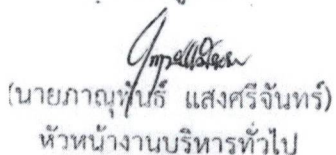 (นายภาณุพันธ์ แสงศรีจันทร์)
หัวหน้างานบริหารทั่วไป